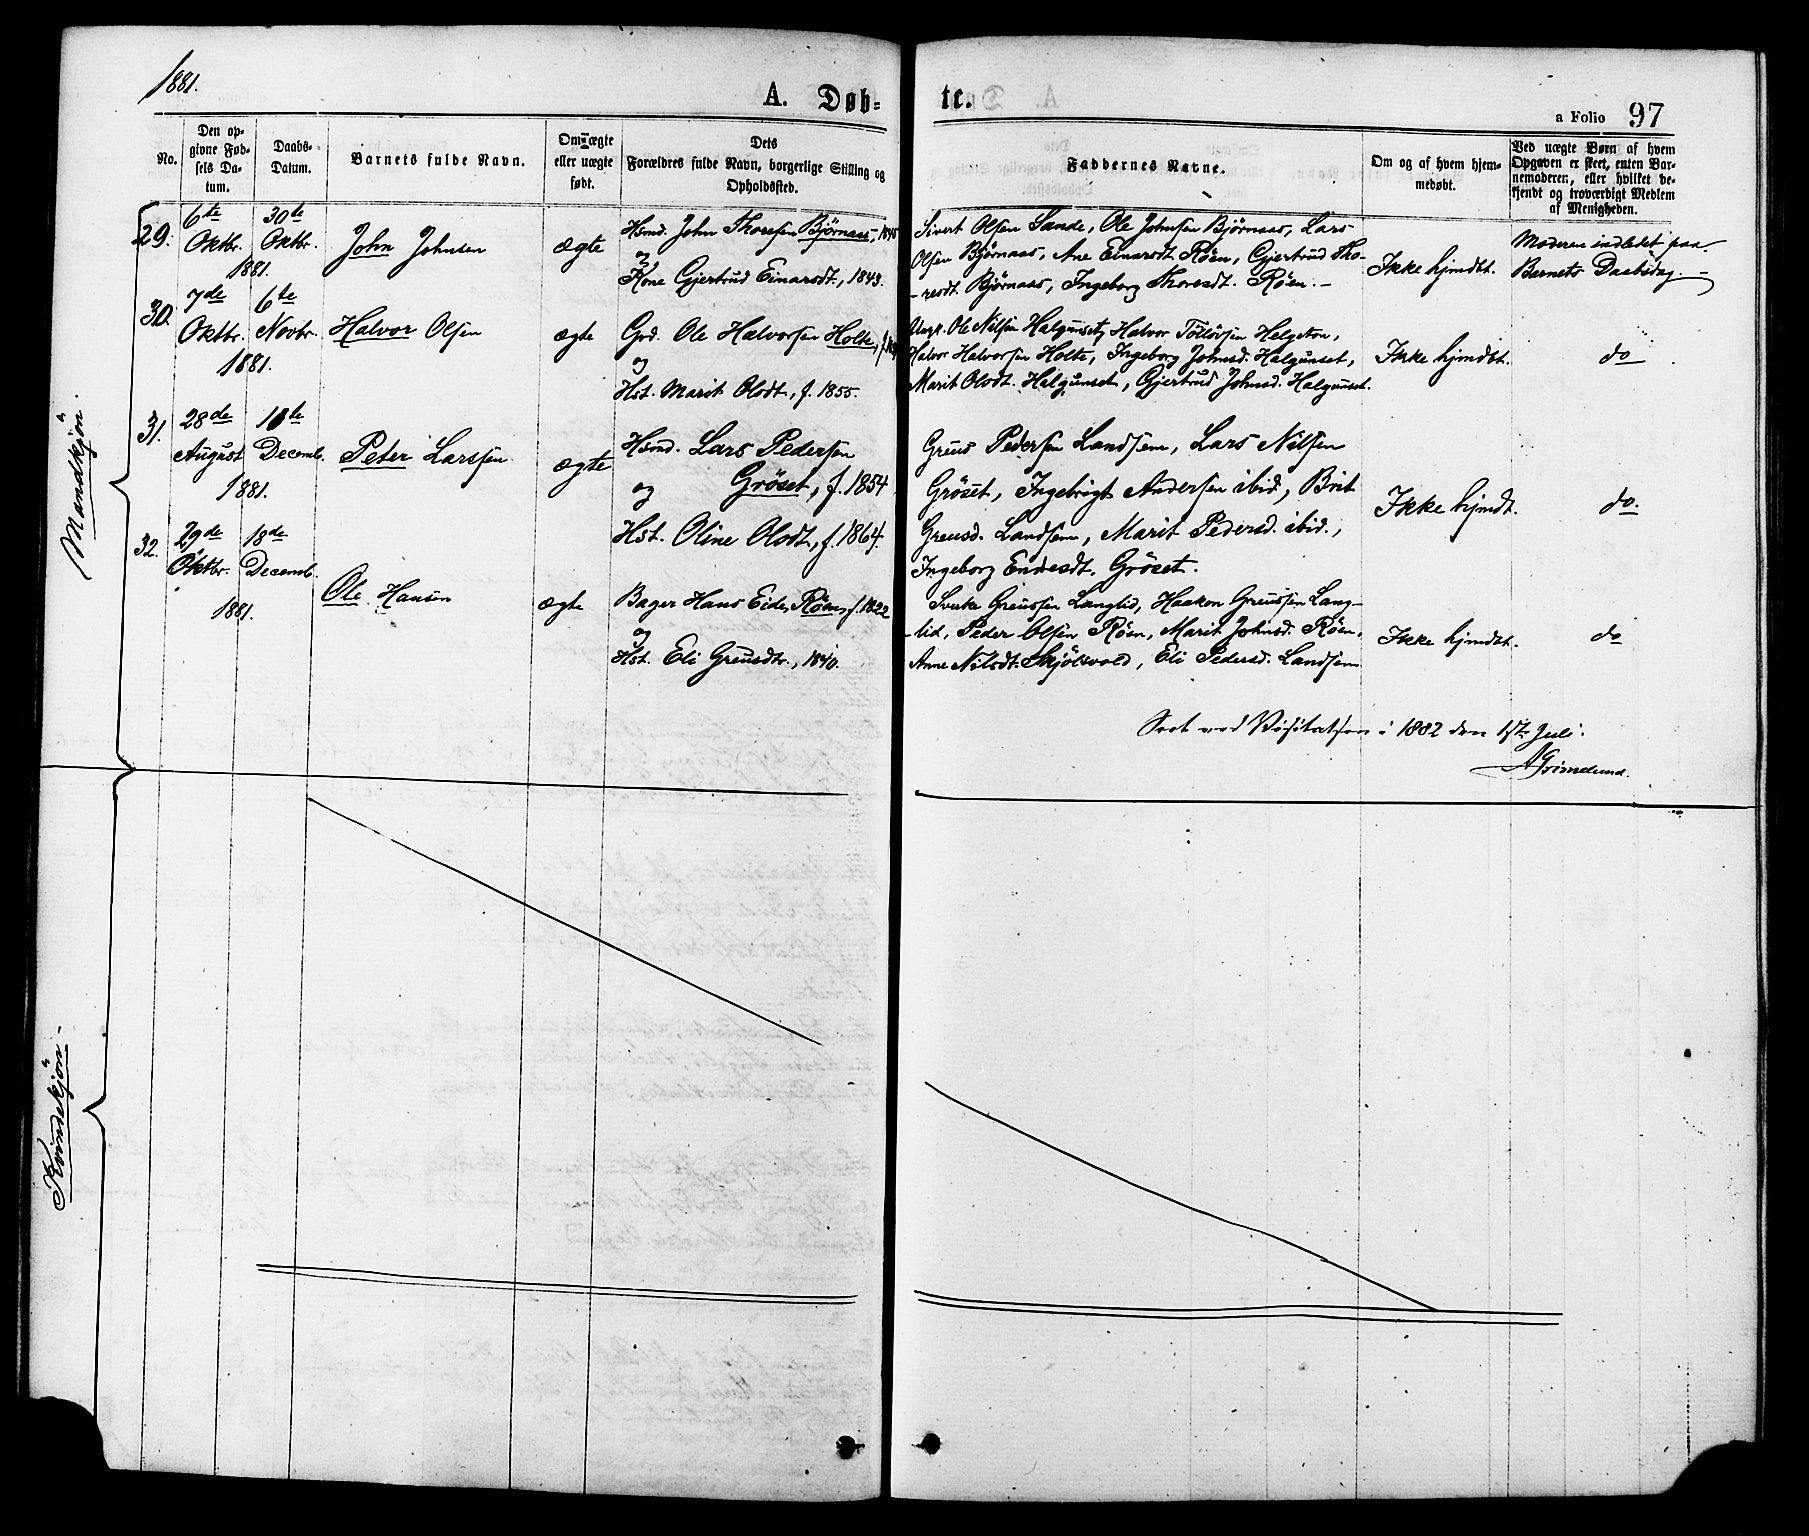 1881.
A. Døb-
te.
a Folio 97
No.
Den op-
givne Fød-
sels Da-
tum.
Daabs-
Datum.
Barnets fulde Navn.
Om ægte
eller uægte
født.
Dets
Forældres fulde Navn, borgerlige Stilling og
Opholdssted.
Faddernes Navne.
Om og af hvem hjem-
medøbt.
Ved uægte Børn af hvem
Opgaven er skeet, enten Bar-
nemoderen, eller hvilket be-
kjendt og troværdigt Medlem
af Menigheden.
Mandkjön.
29.
6te
Oktbr.
1881.
30te
Oktbr.
John Johnsen
ægte
Hsmd. John Thoresen Björnaas, 1845
og
Kone Gjertrud Einarsdt., 1843.
Sivert Olsen Sande, Ole Johnsen Bjørnaas, Lars
Olsen Bjørnaas, Ane Einarsdt. Röen, Gjertrud Tho-
-resdt. Bjørnaas, Ingeborg Thoresdt. Röen.-
Ikke hjmdbt.
Moderen indledet paa
Barnets Daabsdag.-
30.
7de
Oktbr.
1881.
6te
Novbr.
Halvor Olsen
ægte
Grd. Ole Halvorsen Holte,
og
Hst. Marit Olsdt., f. 1855.
Ungk. Ole Nilsen Halgunset, Halvor Tollörsen Helgeton,
Halvor Halvorsen Holte, Ingeborg Johnsd. Halgunset,
Marit Olsdt. Halgunset, Gjertrud Johnsd. Halgunset.
Ikke hjmdbt.
do
31.
28de
August
1881.
11te
Decemb.
Peter Larssen
ægte
Hsmd. Lars Pedersen
Gröset, f. 1854
og
Hst. Oline Olsdt., f. 1864.
Greus Pedersen Landsem, Lars Nilsen
Gröset, Ingebrigt Andersen ibid., Brit
Greusd. Landsem, Marit Pedersd. ibid.,
Ingeborg Endresdt. Gröset.
Ikke hjmdt.
do.
32.
29de
Oktbr.
1881.
18de
Decemb.
Ole Hansen
ægte
Bager Hans Eide, Röen, f. 1822
og
Hst. Eli Greusdtr., 1840.
Greussen Langlid, Haakon Greussen Lang-
-lid, Peder Olsen Röen, Marit Johnsd. Röen,
Anne Nilsdt. Skjölsvold, Eli Pedersd. Landsem
Ikke hjmdbt.
do
Seet ved Visitatsen i 1882 den 17te Juli.
A Grimelund.
Kvindekjön.